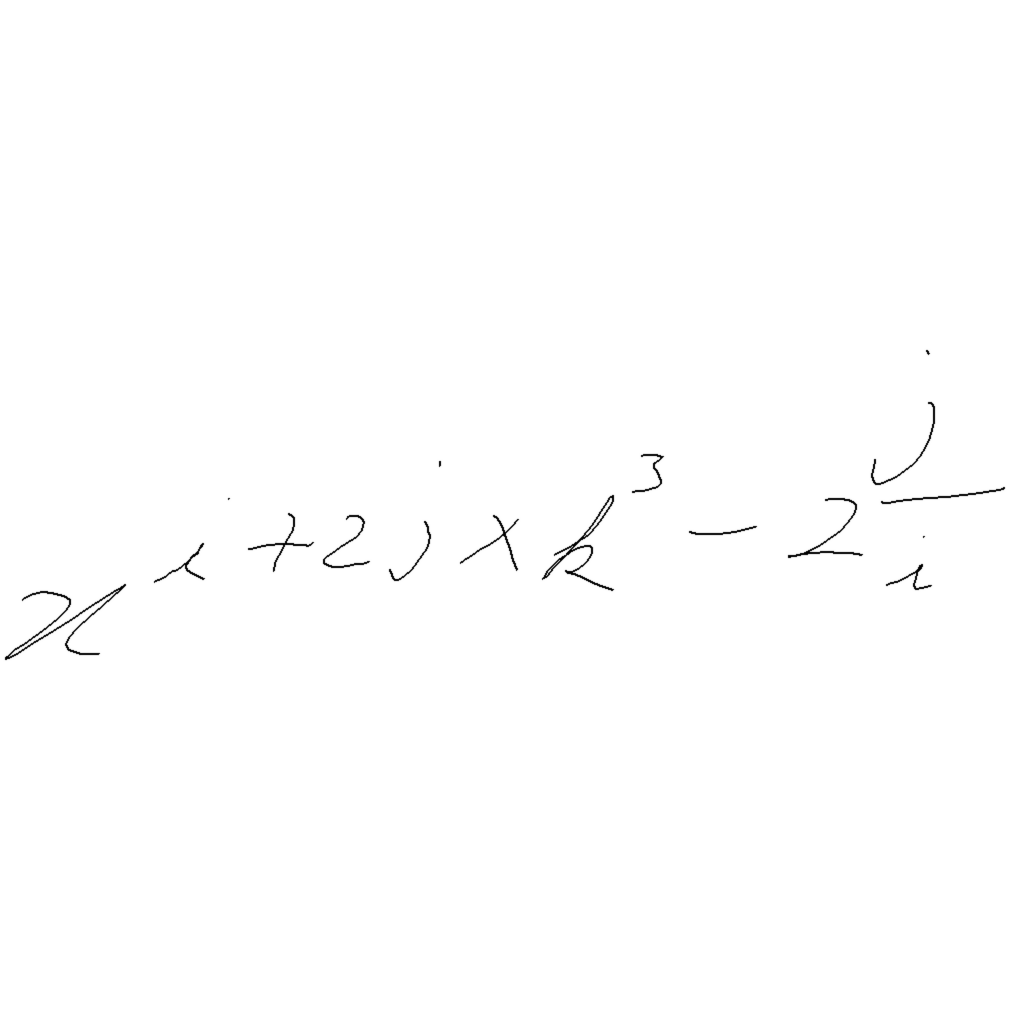 x^{i+2j \times k^3 - 2\frac{j}{i}}